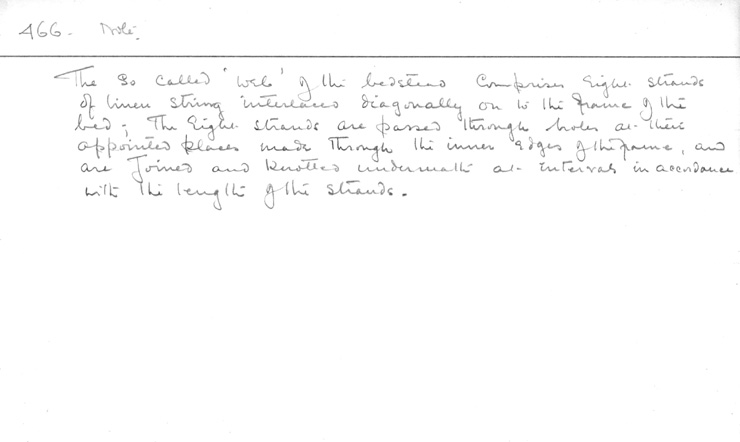 466. Note.
The so called 'web' of the bedstead comprises eight strands
of linen string interlaced diagonally on to the frame of the
bed; The eight strands are passed through holes at their
appointed places made through the inner edges of the frame, and
are joined and knotted underneath at intervals in accordance
with the length of the strands.